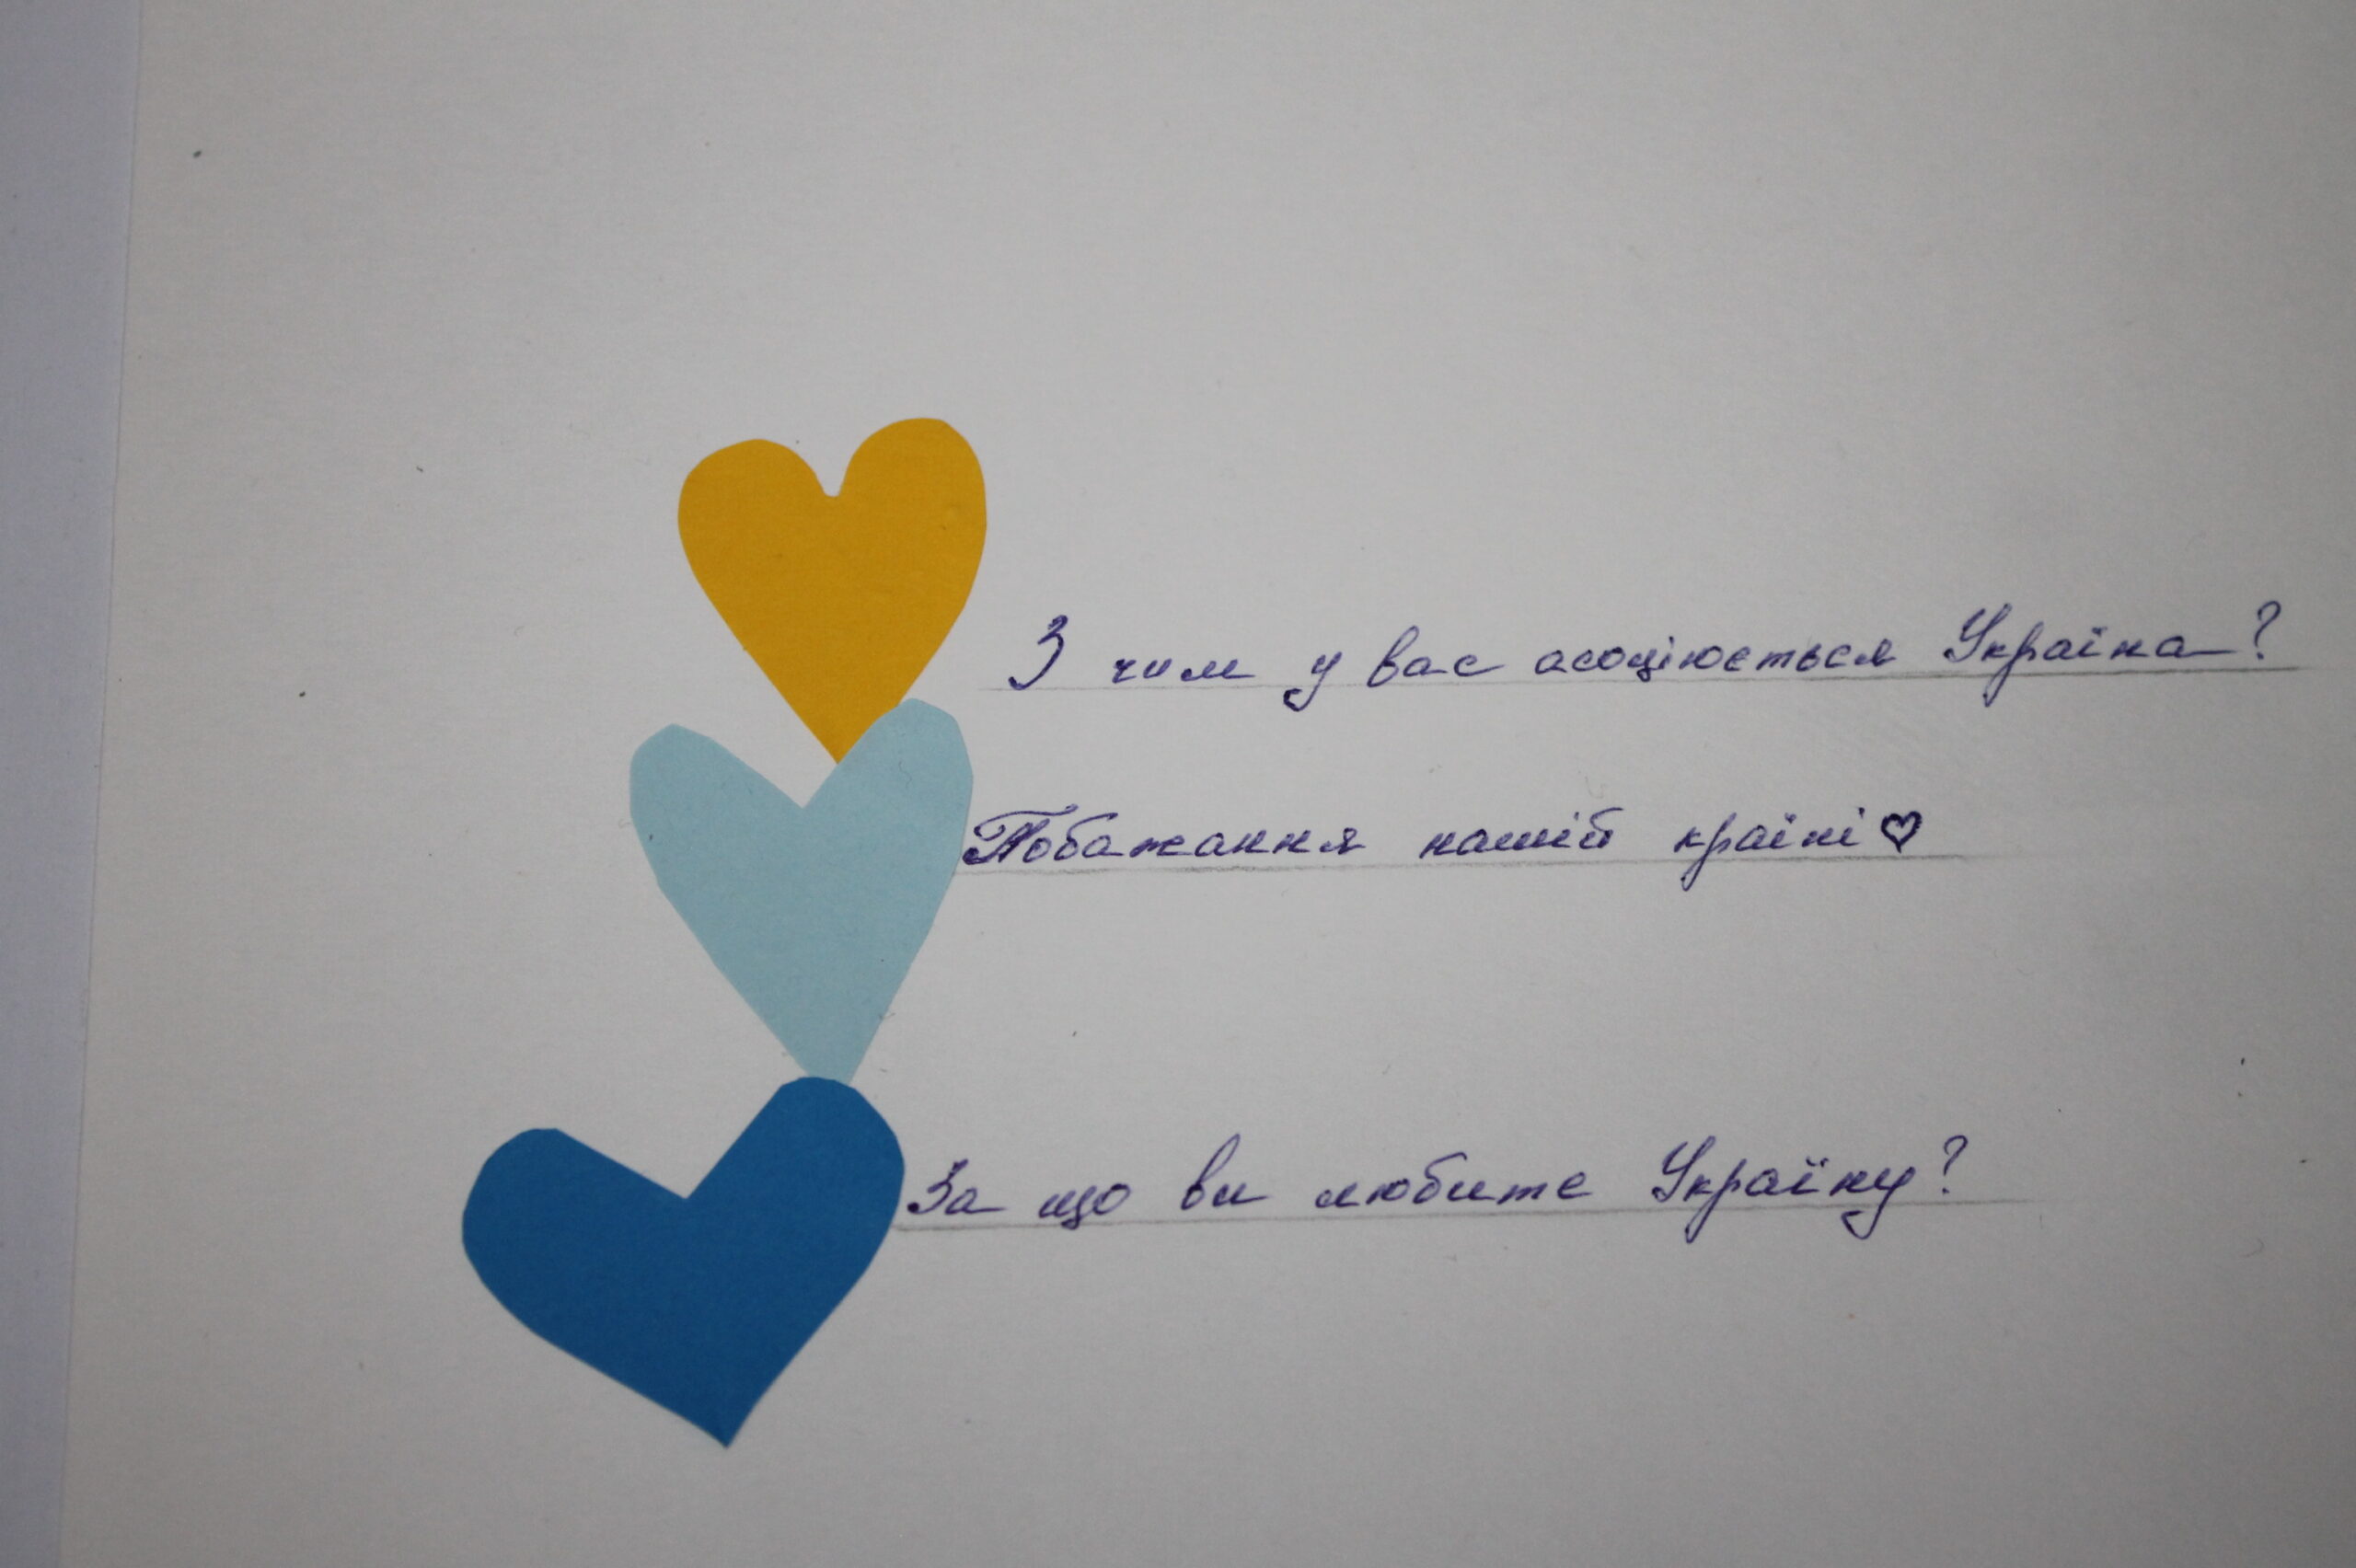 З чим у вас асоціюється Україна?
Побажання нашій країні♡
За що ви любите Україну?